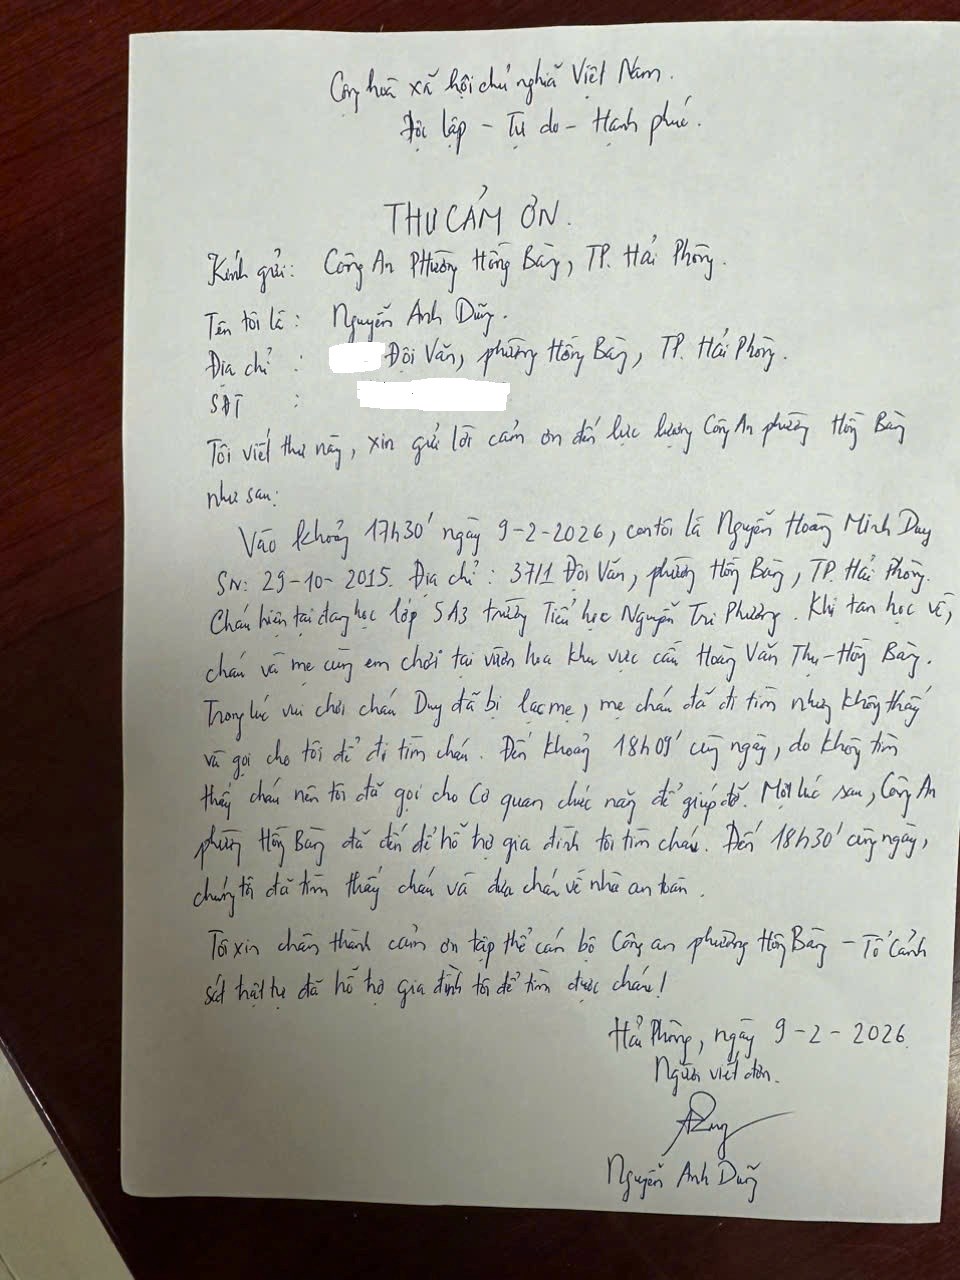 Cộng hoà xã hội chủ nghĩa Việt Nam.
Độc lập - Tự do - Hạnh phúc.
THƯ CẢM ƠN.
Kính gửi: Công An Phường Hồng Bàng, TP. Hải Phòng.
Tên tôi là: Nguyễn Anh Dũng.
Địa chỉ : Đội Văn, phường Hồng Bàng, TP. Hải Phòng.
SĐT :
Tôi viết thư này, xin gửi lời cảm ơn đến lực lượng Công An phường Hồng Bàng
như sau:
Vào khoảng 17h30' ngày 9-2-2026, con tôi là Nguyễn Hoàng Minh Duy
SN: 29-10-2015. Địa chỉ: 37/1 Đội Văn, phường Hồng Bàng, TP. Hải Phòng.
Cháu hiện tại đang học lớp 5A3 trường Tiểu học Nguyễn Tri Phương. Khi tan học về,
cháu và mẹ cùng em chơi tại vườn hoa khu vực cầu Hoàng Văn Thụ - Hồng Bàng.
Trong lúc vui chơi cháu Duy đã bị lạc mẹ, mẹ cháu đã đi tìm nhưng không thấy
và gọi cho tôi để đi tìm cháu. Đến khoảng 18h09' cùng ngày, do không tìm
thấy cháu nên tôi đã gọi cho Cơ quan chức năng để giúp đỡ. Một lúc sau, Công An
phường Hồng Bàng đã đến để hỗ trợ gia đình tôi tìm cháu. Đến 18h30' cùng ngày,
chúng tôi đã tìm thấy cháu và đưa cháu về nhà an toàn.
Tôi xin chân thành cảm ơn tập thể cán bộ Công an phường Hồng Bàng - Tổ Cảnh
sát trật tự đã hỗ trợ gia đình tôi để tìm được cháu!
Hải Phòng, ngày 9-2-2026.
Người viết đơn.
Nguyễn Anh Dũng